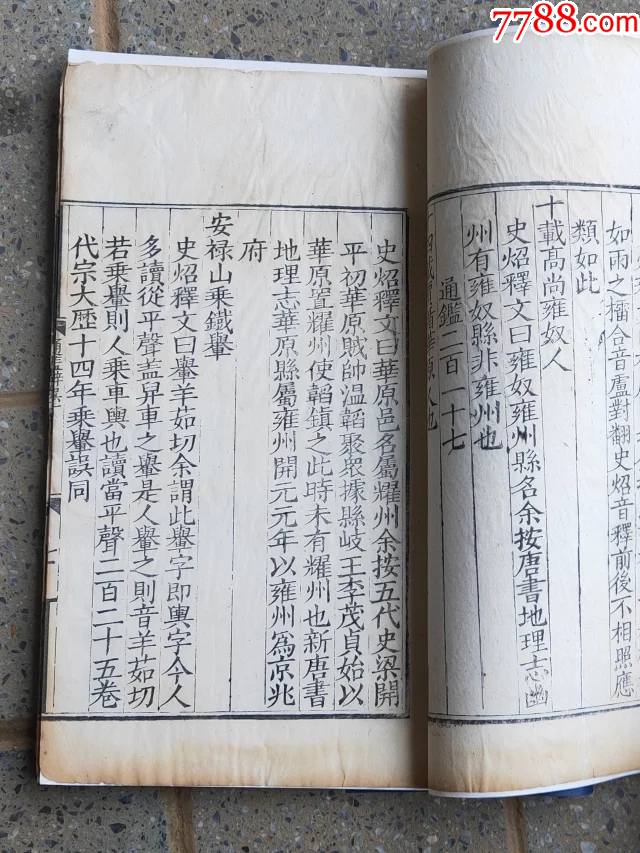 7788.com
如雨之檑合音盧對翻史炤音釋前後不相照應
類如此
十載髙尚雍奴人
史炤釋文曰雍奴雍州縣名余按唐書地理志幽
州有雍奴縣非雍州也
通鑑二百一十七
十四載賈循華原人也
史炤釋文曰華原邑名屬耀州余按五代史梁開
平初華原賊帥温韜聚衆據縣岐王李茂貞始以
華原置耀州使韜鎮之此時未有耀州也新唐書
地理志華原縣屬雍州開元元年以雍州爲京兆
府
安禄山乘鐵轝
史炤釋文曰轝羊茹切余謂此轝字即輿字今人
多讀從平聲蓋舁車之轝是人轝之則音羊茹切
若乘轝則人乘車輿也讀當平聲二百二十五卷
代宗大歴十四年乘轝誤同